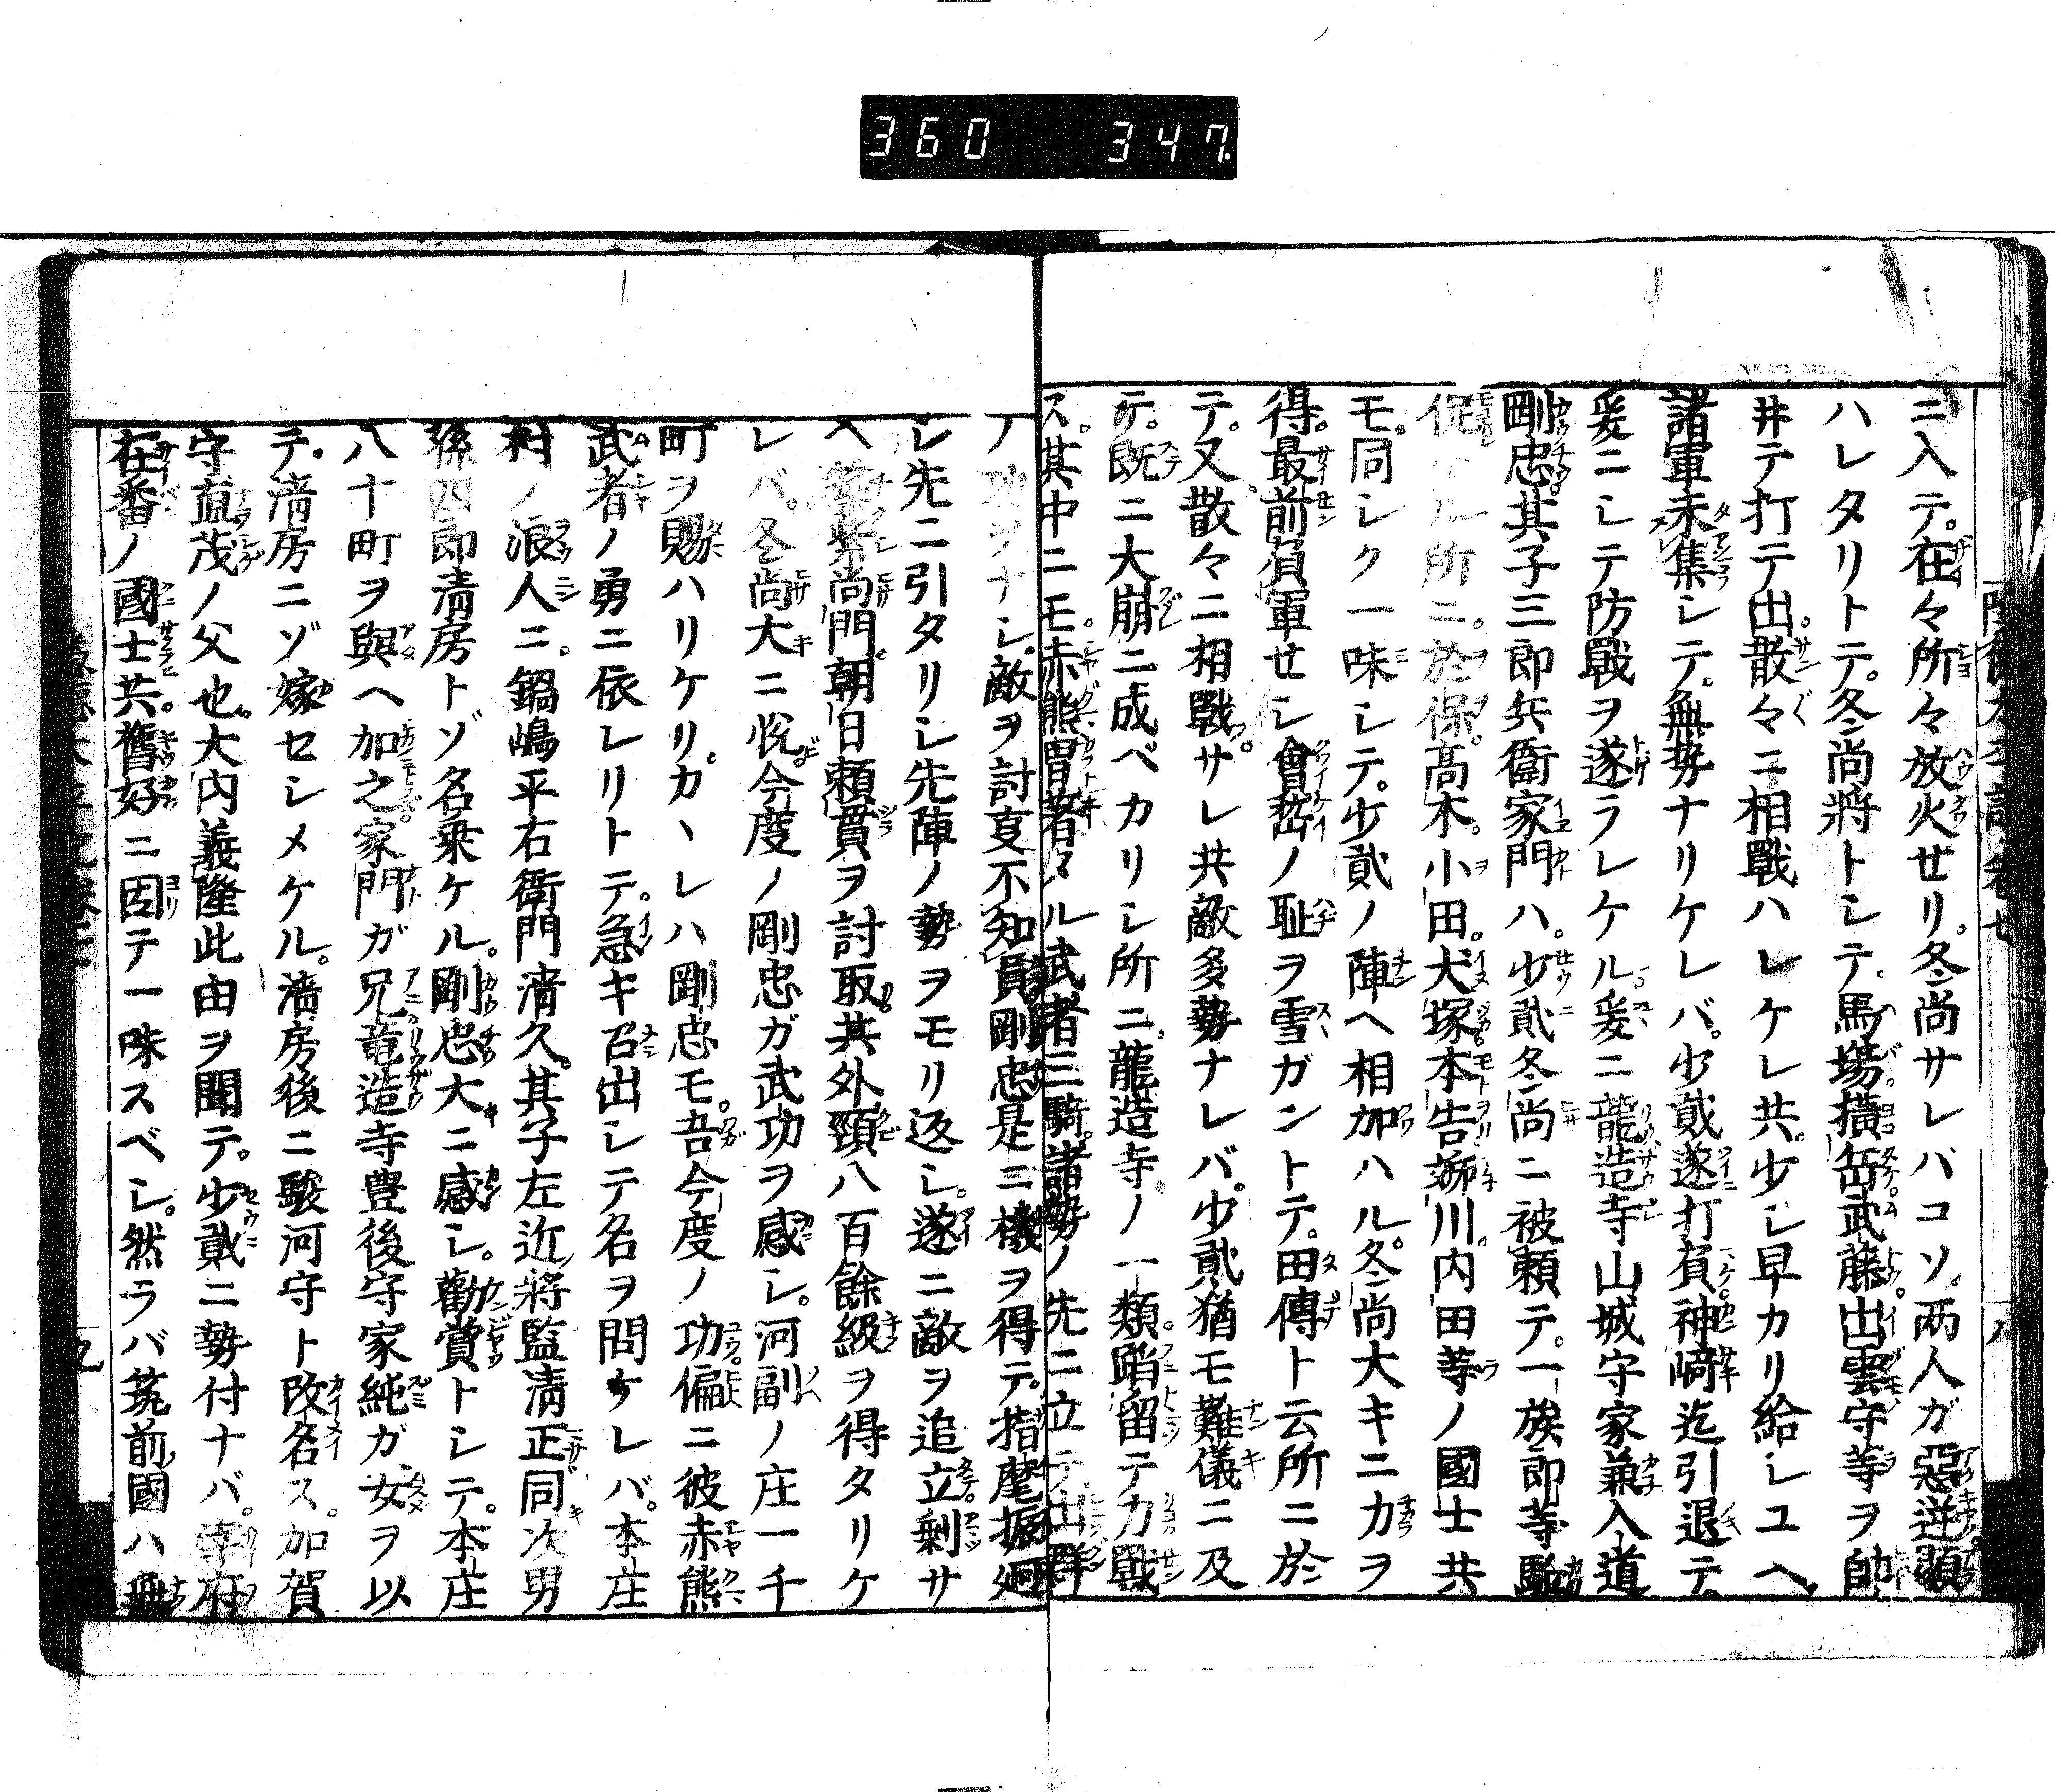 360 347
ニ入テ。在々所々放火セリ。冬尚サレバコソ両人ガ惡逆顕
ハレタリトテ。冬尚將トシテ。馬塲横岳武藤出雲守等ヲ帥
井テ打テ出。散々ニ相戰ハレケレ共。少シ早カリ給シユヘ。
諸軍未集シテ。無勢ナリケレバ。少貳遂打負神﨑迄引退テ。
爰ニシテ防戰ヲ遂ラレケル爰ニ龍造寺山城守家兼入道
剛忠。其子三郎兵衞家門ハ。少貳冬尚ニ被頼テ。一族郎等駈
促 ル所ニ。於保。髙木。小田。犬塚本告蛎川内田等ノ國士共
モ。同シク一味シテ。少貳ノ陣ヘ相加ハル。冬尚大キニ力ヲ
得。最前負軍セシ會嵆ノ耻ヲ雪ガントテ。田傳ト云所ニ於
テ。又散々ニ相戰。サレ共敵多勢ナレバ。少貳猶モ難儀ニ及
テ。既ニ大崩ニ成ベカリシ所ニ。龍造寺ノ一類。蹈留テ力戰
ス。其中ニモ。赤熊冑著タル武者三騎。諸勢ノ先ニ立テ出群
ノ ヲナシ。敵ヲ討叓不知員剛忠是ニ機ヲ得テ。指麾振廻
シ先ニ引タリシ先陣ノ勢ヲモリ返シ。遂ニ敵ヲ追立剰サ
ヘ筑紫尚門。朝日頼貫ヲ討取。其外頸八百餘級ヲ得タリケ
レバ。冬尚大ニ悦今度ノ剛忠ガ武功ヲ感シ。河副ノ庄一千
町ヲ賜ハリケリ。カヽレハ剛忠モ。吾今度ノ功偏ニ彼赤熊
武者ノ勇ニ依レリトテ。急キ召出シテ名ヲ問ケレバ。本庄
村ノ浪人ニ。鍋嶋平右衞門清久。其子左近將監清正同次男
孫四郎清房トゾ名乗ケル。剛忠大ニ感シ。勸賞トシテ。本庄
八十町ヲ與ヘ加之家門ガ兄竜造寺豊後守家純ガ女ヲ以
テ。清房ニゾ嫁セシメケル。清房後ニ駿河守ト改名ス。加賀
守直茂ノ父也。大内義隆此由ヲ聞テ。少貳ニ勢付ナバ。宰府
在番ノ國士共。舊好ニ因テ一味スベシ。然ラバ筑前國ハ無